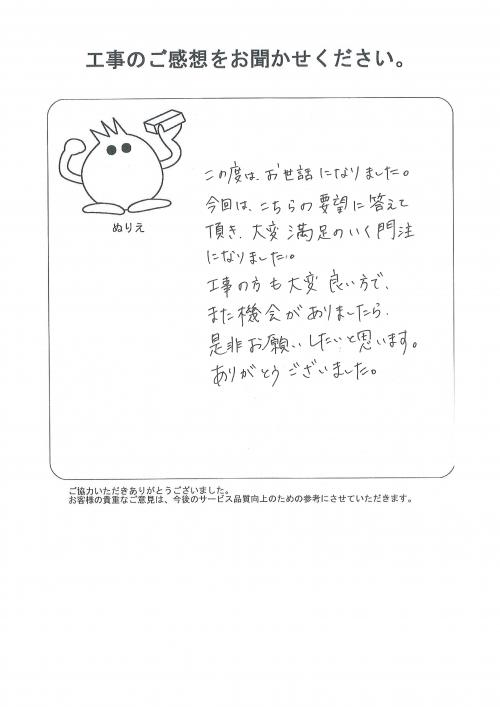 工事のご感想をお聞かせください。
ぬりえ
この度は、お世話になりました。
今回は、こちらの要望に答えて
頂き、大変満足のいく門注
になりました。
工事の方も大変良い方で、
また機会がありましたら、
是非お願いしたいと思います。
ありがとうございました。
ご協力いただきありがとうございました。
お客様の貴重なご意見は、今後のサービス品質向上のための参考にさせていただきます。